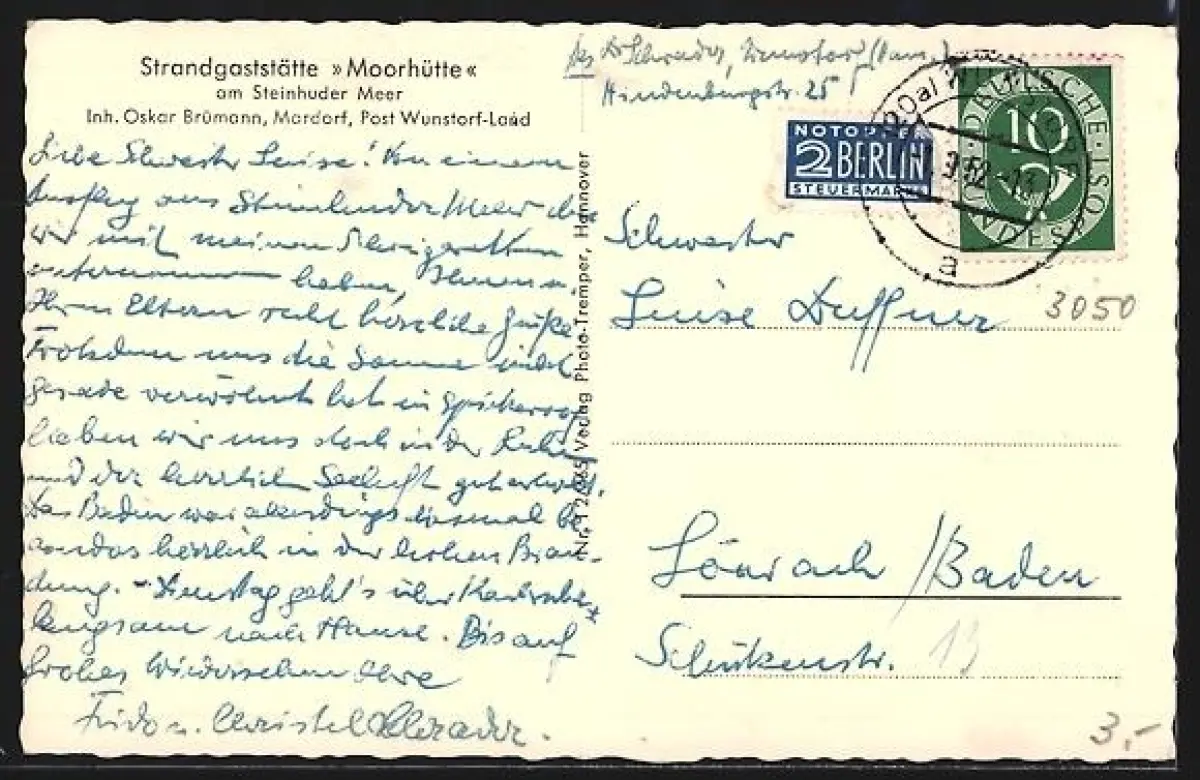 Strandgaststätte »Moorhütte«
am Steinhuder Meer
Inh. Oskar Brümann, Mardorf, Post Wunstorf-Land
Liebe Schwester Luise! Von einem
Ausflug ans Steinhuder Meer den
wir mit meinen Schwiegereltern
unternommen haben, Ihnen u.
Ihren Eltern recht herzliche Grüße
Trotzdem uns die Sonne nicht
gerade verwöhnt hat in Spiekeroog
haben wir uns doch in der Ruhe
und der herrlich Seeluft gut erholt.
Das Baden war allerdings diesmal be
sonders herrlich in der hohen Bran-
dung. - Dienstag geht's über Karlsruhe
langsam nach Hause. Bis auf
frohes Wiedersehen Ihre
Frido u. Christel Schrader.
Nr. 12/965 Verlag Photo-Tremper, Hannover
Abs Dr Schrader, Wunstorf (Hann.)
Hindenburgstr. 25
NOTOPFER
2 BERLIN
STEUERMARKE
DEUTSCHE BUNDESPOST
10
52
a
Schwester
Luise Duffner
3050
Lörrach /Baden
Schützenstr. 13
3.-